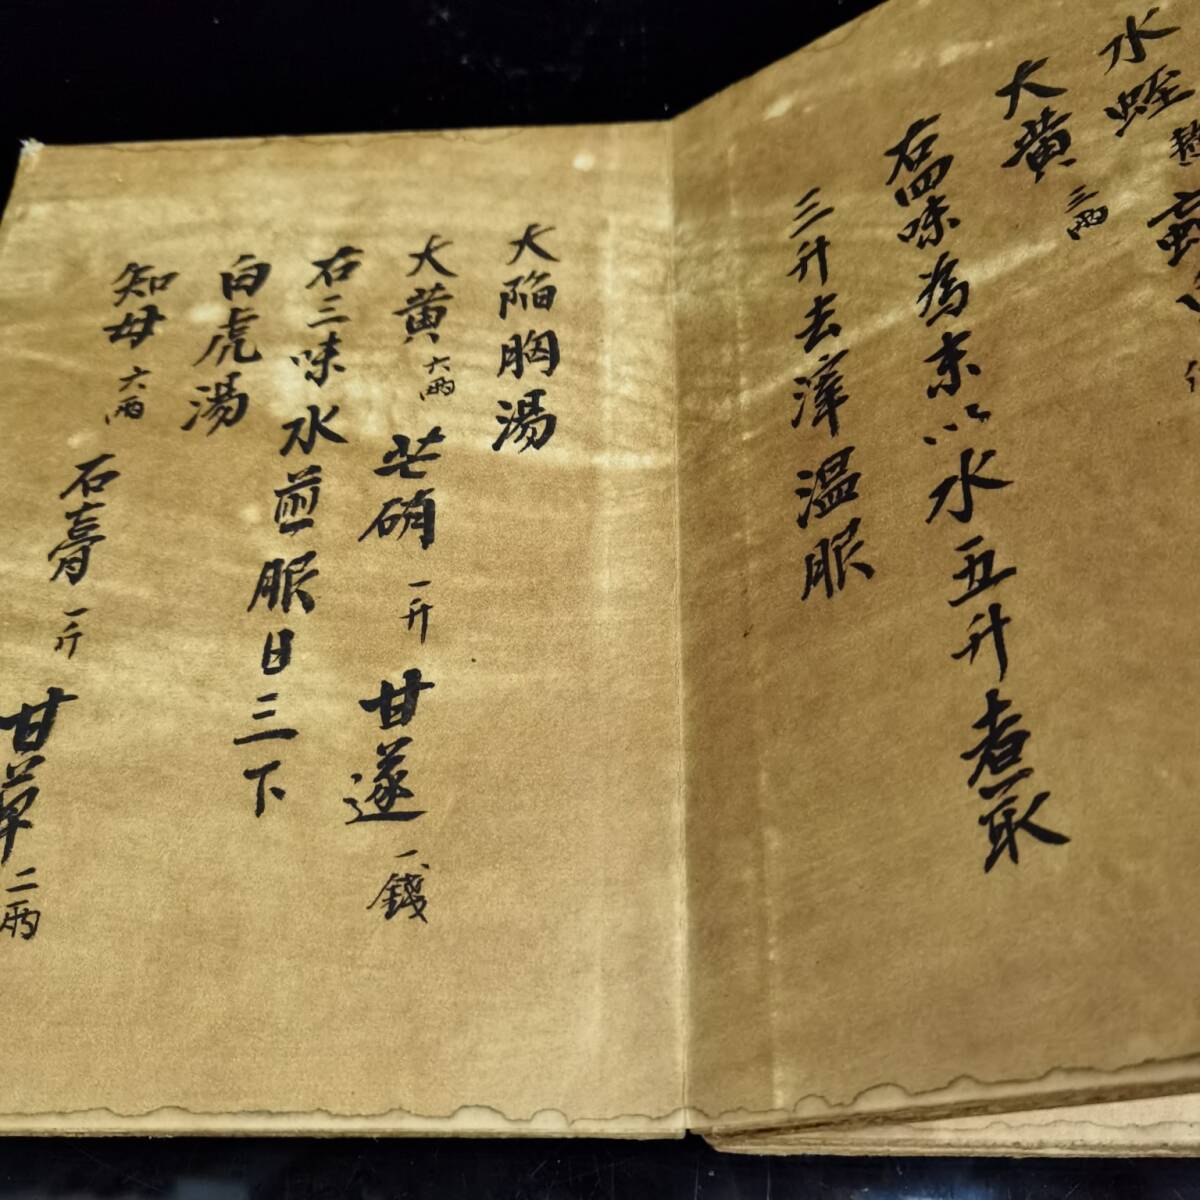 水蛭 虻虫
大黄 三兩
右四味為末以水五升煮取
三升去滓温服
大陷胸湯
大黄 六兩 芒硝 一升 甘遂 一錢
右三味水煎服日三下
白虎湯
知母 六兩 石膏 一斤 甘草 二兩